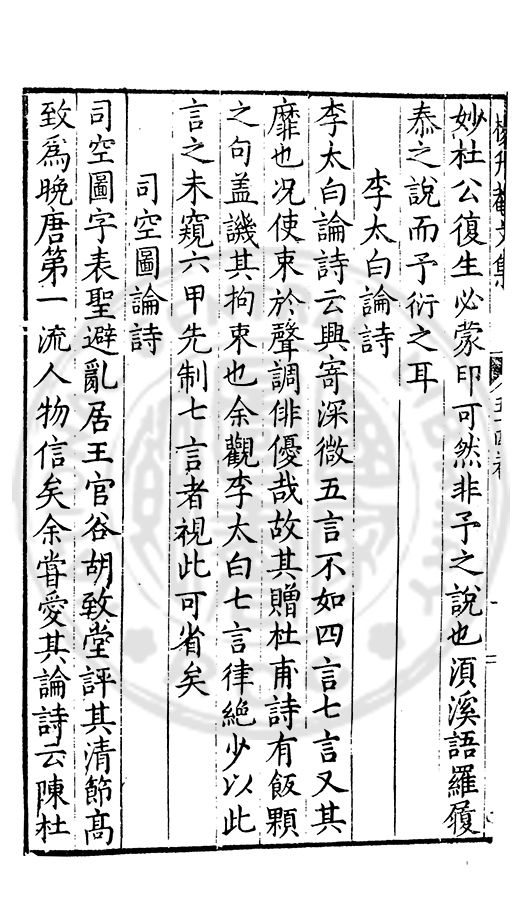 妙杜公復生必蒙印可然非予之說也湏溪語羅履
泰之說而予衍之耳
李太白論詩
李太白論詩云興寄深微五言不如四言七言又其
靡也况使束於聲調俳優哉故其贈杜甫詩有飯顆
之句盖譏其拘束也余觀李太白七言律絶少以此
言之未窺六甲先制七言者視此可省矣
司空圖論詩
司空圖字表聖避亂居王官谷胡致堂評其清節高
致爲晩唐第一流人物信矣余嘗愛其論詩云陳杜